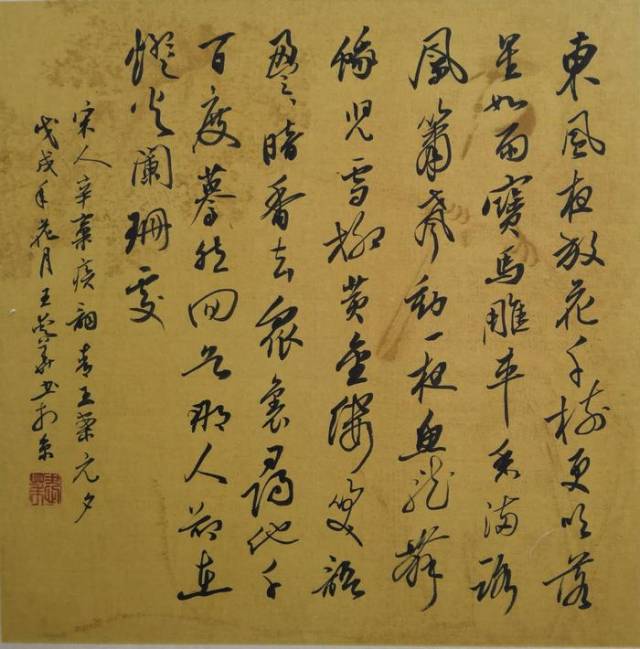 東風夜放花千樹更吹落
星如雨寶馬雕車香滿路
鳳簫聲動一夜魚龍舞
蛾兒雪柳黃金縷笑語
盈盈暗香去眾裏尋他千
百度驀然回首那人卻在
燈火闌珊處
宋人辛棄疾詞青玉案元夕
戊戌年花月王華書於京